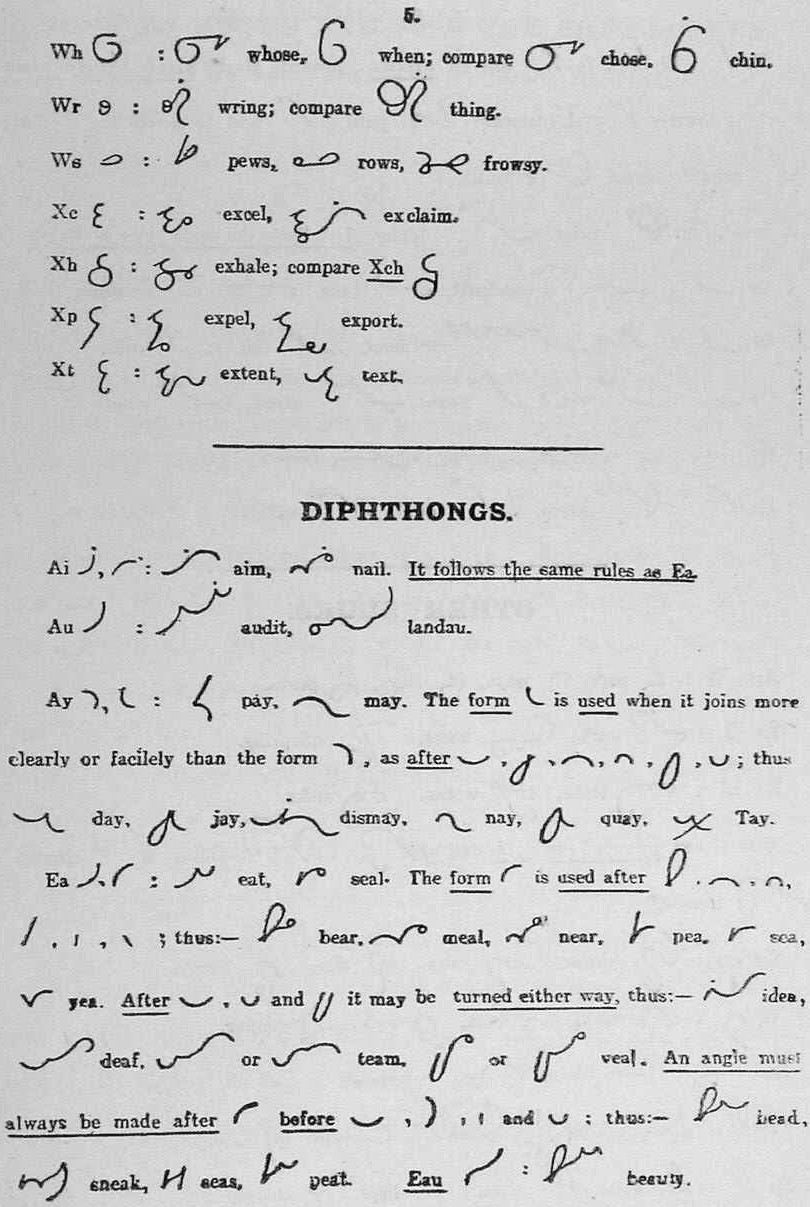 5.
Wh : whose, when; compare chose, chin.
Wr : wring; compare thing.
Ws : pews, rows, frowsy.
Xc : excel, exclaim.
Xh : exhale; compare Xch
Xp : expel, export.
Xt : extent, text.
DIPHTHONGS.
Ai , : aim, nail. It follows the same rules as Ea.
Au : audit, landau.
Ay , : pay, may. The form is used when it joins more
clearly or facilely than the form , as after , , , , , ; thus
day, jay, dismay, nay, quay, Tay.
Ea , : eat, seal. The form is used after , , ,
, , , ; thus:— bear, meal, near, pea, sea,
yea. After , and it may be turned either way, thus:— idea,
deaf, or team, or veal. An angle must
always be made after before , , , and ; thus:— bead,
sneak, seas, peat. Eau : beauty.